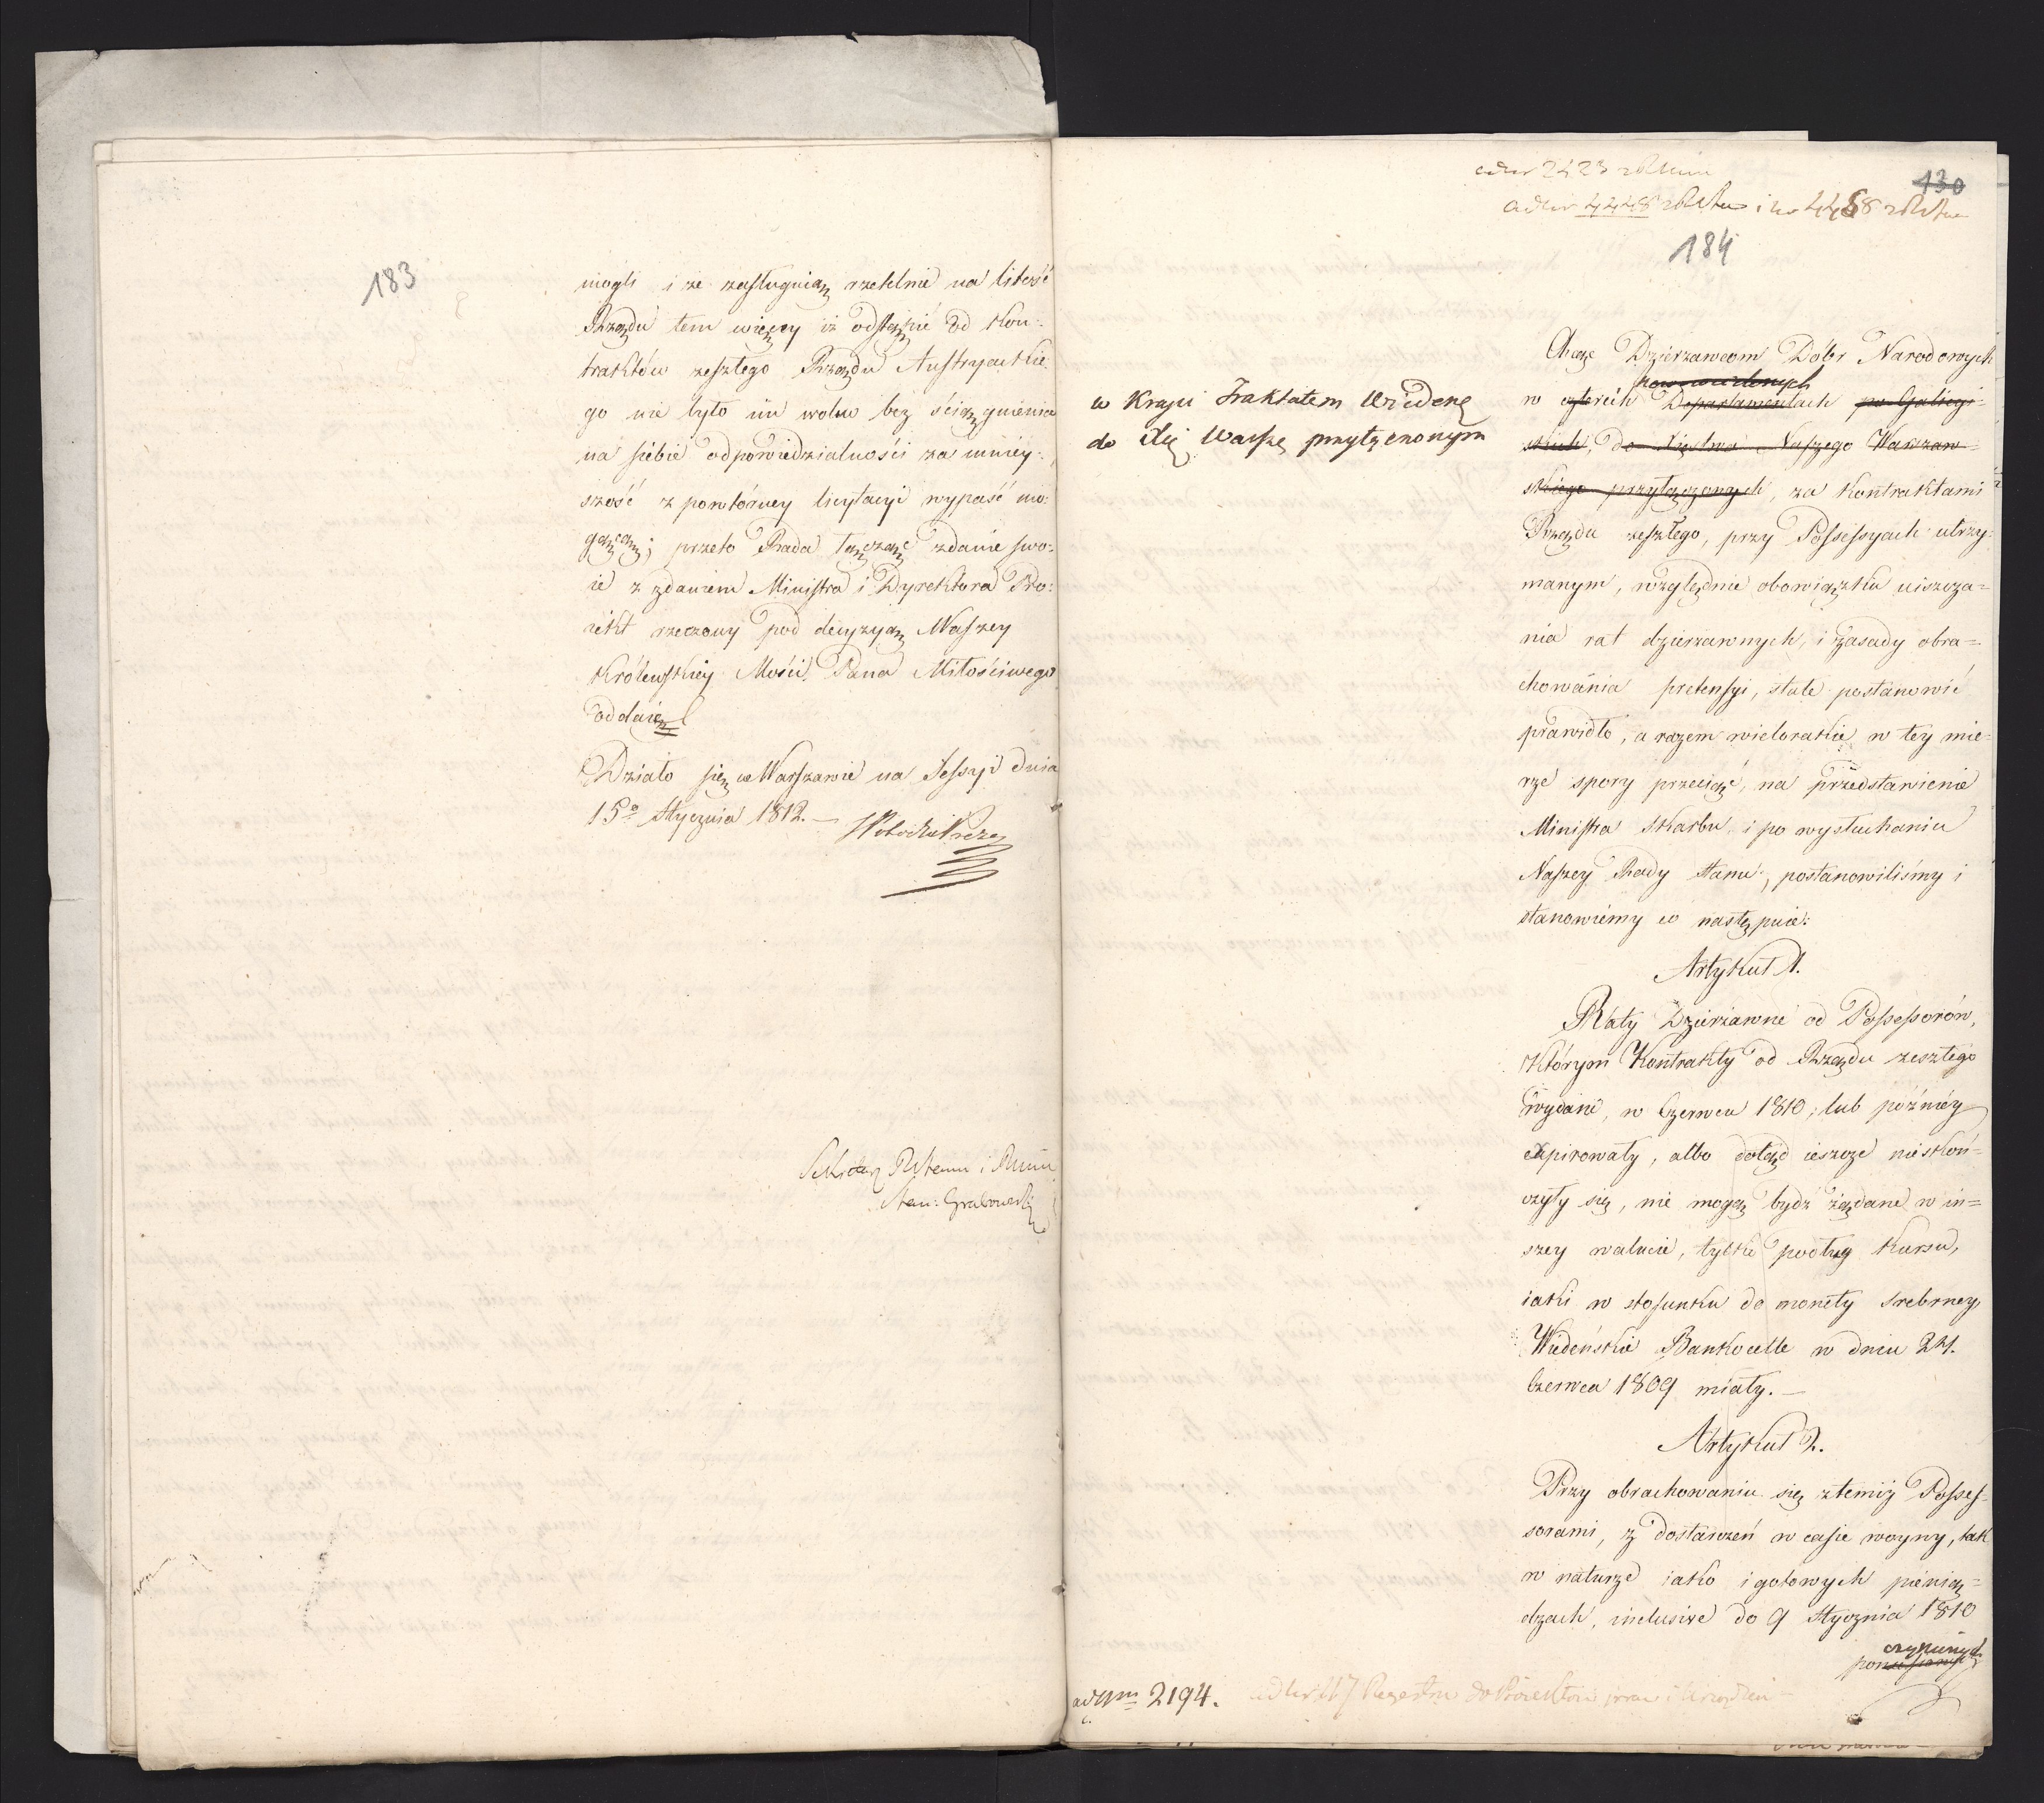 183
mogli i że zasługuią rzetelnie na litość
Rządu tem więcey iż odstąpić od Kon:
traktów zeszłego Rządu Austryackie
go nie było im wolno bez ściągnienia
na siebie odpowiedzialności za mniey:
szość z powtórney licytacyi wypaść mo:
gącą; przeto Rada łącząc zdanie swo:
ie z zdaniem Ministra i Dyrektora Pro:
iekt rzeczony pod decyzyą Waszey
Królewskiey Mości Pana Miłościwego
oddaie
Działo się w Warszawie na Sessyi dnia
15º Stycznia 1812.
Sekretarz R Stanu i Minis
Stan: Grabowski
130
ad Nr 2423
ad Nr 4448 i Nr 4458
184
Chcąc Dzierżawcom Dóbr Narodowych
w czterech Departamentach po Galicyi-
skich, do Xięstwa Naszego Warszaw-
skiego przyłączonych, za Kontraktami
Rządu zeszłego, przy Possessyach utrzy-
manym, względnie obowiązku uiszcza=
nia rat dzierżawnych, i zasady obra=
chowania pretensyi, stałe postanowić
prawidło, a razem wielorakie w tey mie=
rze spory przeciąć, na przedstawienie
Ministra Skarbu i po wysłuchaniu
Naszey Rady Stanu, postanowiliśmy i
stanowiemy co następuie:
w Kraju Traktatem Wiedeń
do Xię Warsz przyłączonym
Artykuł 1.
Raty Dzierżawne od Possessorów,
którym Kontrakty od Rządu zeszłego
wydane, w Czerwcu 1810, lub późniey
expirowały, albo dotąd ieszcze nieskoń-
czyły się, nie mogą bydź żądane w in=
szey walucie, tylko podług kursu,
iaki w stosunku do monety srebrney,
Wiedeńskie Bankocetle w dniu 21.
Czerwca 1809 miały. —
Artykuł 2.
Przy obrachowaniu się z temiż Posses-
sorami, z dostarczeń w czasie woyny, tak
w naturze iako i gotowych pienią=
dzach, inclusive do 9 Stycznia 1810
czynionych
ad Num 2194.